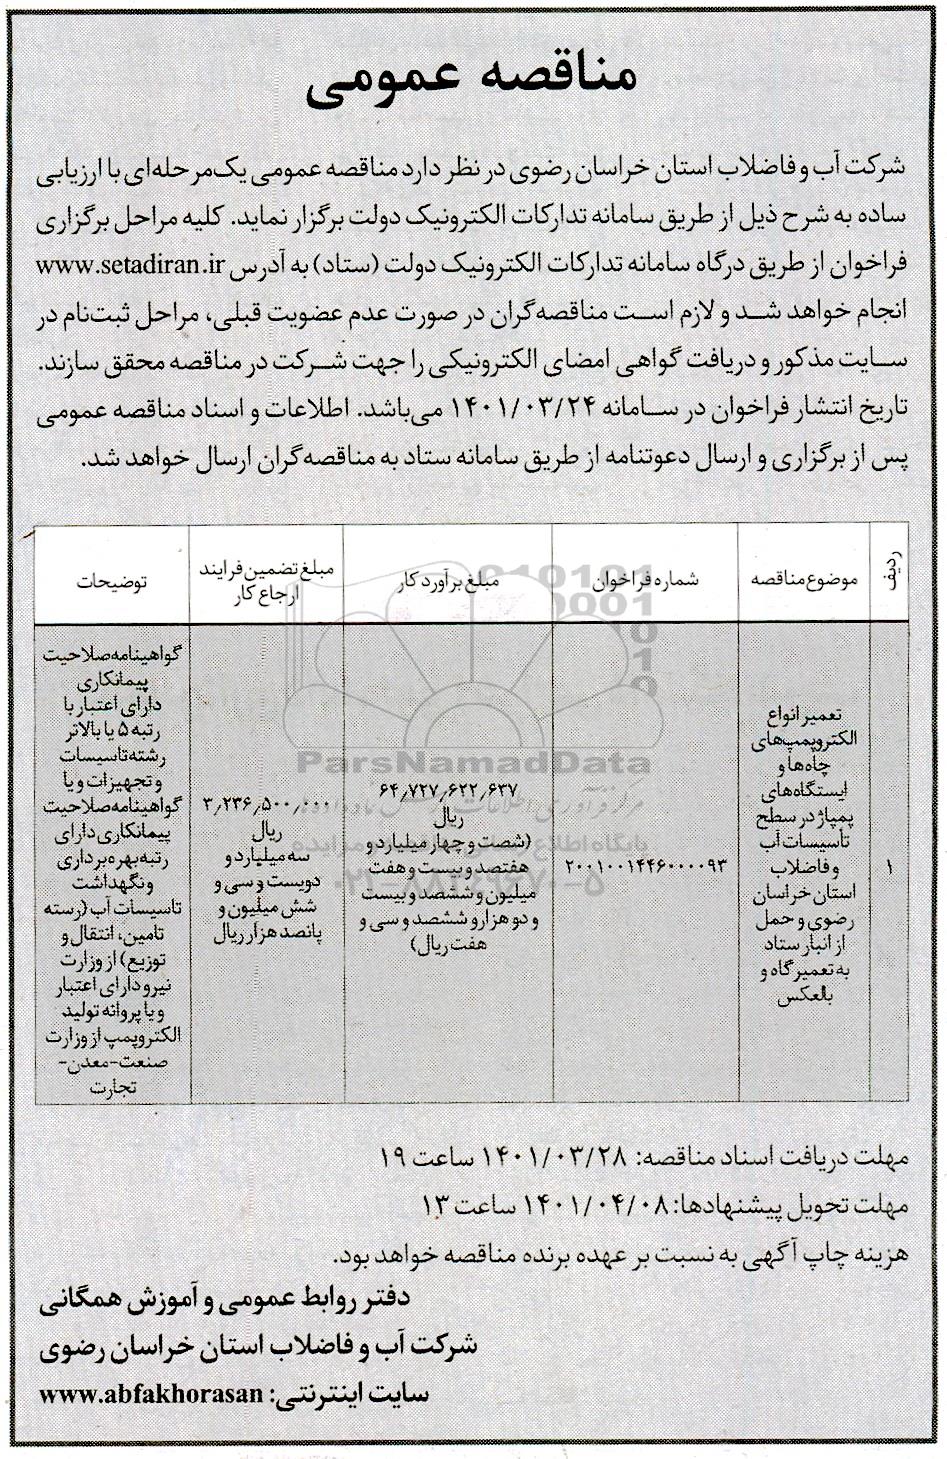 مناقصه عمومی
شرکت آب و فاضلاب استان خراسان رضوی در نظر دارد مناقصه عمومی یک‌مرحله‌ای با ارزیابی
ساده به شرح ذیل از طریق سامانه تدارکات الکترونیک دولت برگزار نماید. کلیه مراحل برگزاری
فراخوان از طریق درگاه سامانه تدارکات الکترونیک دولت (ستاد) به آدرس www.setadiran.ir
انجام خواهد شد و لازم است مناقصه‌گران در صورت عدم عضویت قبلی، مراحل ثبت‌نام در
سایت مذکور و دریافت گواهی امضای الکترونیکی را جهت شرکت در مناقصه محقق سازند.
تاریخ انتشار فراخوان در سامانه ۱۴۰۱/۰۳/۲۴ می‌باشد. اطلاعات و اسناد مناقصه عمومی
پس از برگزاری و ارسال دعوتنامه از طریق سامانه ستاد به مناقصه‌گران ارسال خواهد شد.
ردیف
موضوع مناقصه
شماره فراخوان
مبلغ برآورد کار
مبلغ تضمین فرایند
ارجاع کار
توضیحات
۱
تعمیر انواع
الکتروپمپ‌های
چاه‌ها و
ایستگاه‌های
پمپاژ در سطح
تأسیسات آب
و فاضلاب
استان خراسان
رضوی و حمل
از انبار ستاد
به تعمیرگاه و
بالعکس
۲۰۰۱۰۰۱۴۴۶۰۰۰۰۹۳
۶۴٫۷۲۷٫۶۲۲٫۶۳۷
ریال
(شصت و چهار میلیارد و
هفتصد و بیست و هفت
میلیون و ششصد و بیست
و دو هزار و ششصد و سی و
هفت ریال)
۳٫۲۳۶٫۵۰۰٫۰۰۰
ریال
سه میلیارد و
دویست و سی و
شش میلیون و
پانصد هزار ریال
گواهینامه صلاحیت
پیمانکاری
دارای اعتبار با
رتبه ۵ یا بالاتر
رشته تاسیسات
و تجهیزات و یا
گواهینامه صلاحیت
پیمانکاری دارای
رتبه بهره برداری
و نگهداشت
تاسیسات آب (رسته
تامین، انتقال و
توزیع) از وزارت
نیرو دارای اعتبار
و یا پروانه تولید
الکتروپمپ از وزارت
صنعت-معدن-
تجارت
ParsNamadData
۰۲۱-۸۸۳۴۹۶۷۰-۵
مهلت دریافت اسناد مناقصه: ۱۴۰۱/۰۳/۲۸ ساعت ۱۹
مهلت تحویل پیشنهادها: ۱۴۰۱/۰۴/۰۸ ساعت ۱۳
هزینه چاپ آگهی به نسبت بر عهده برنده مناقصه خواهد بود.
دفتر روابط عمومی و آموزش همگانی
شرکت آب و فاضلاب استان خراسان رضوی
سایت اینترنتی: www.abfakhorasan